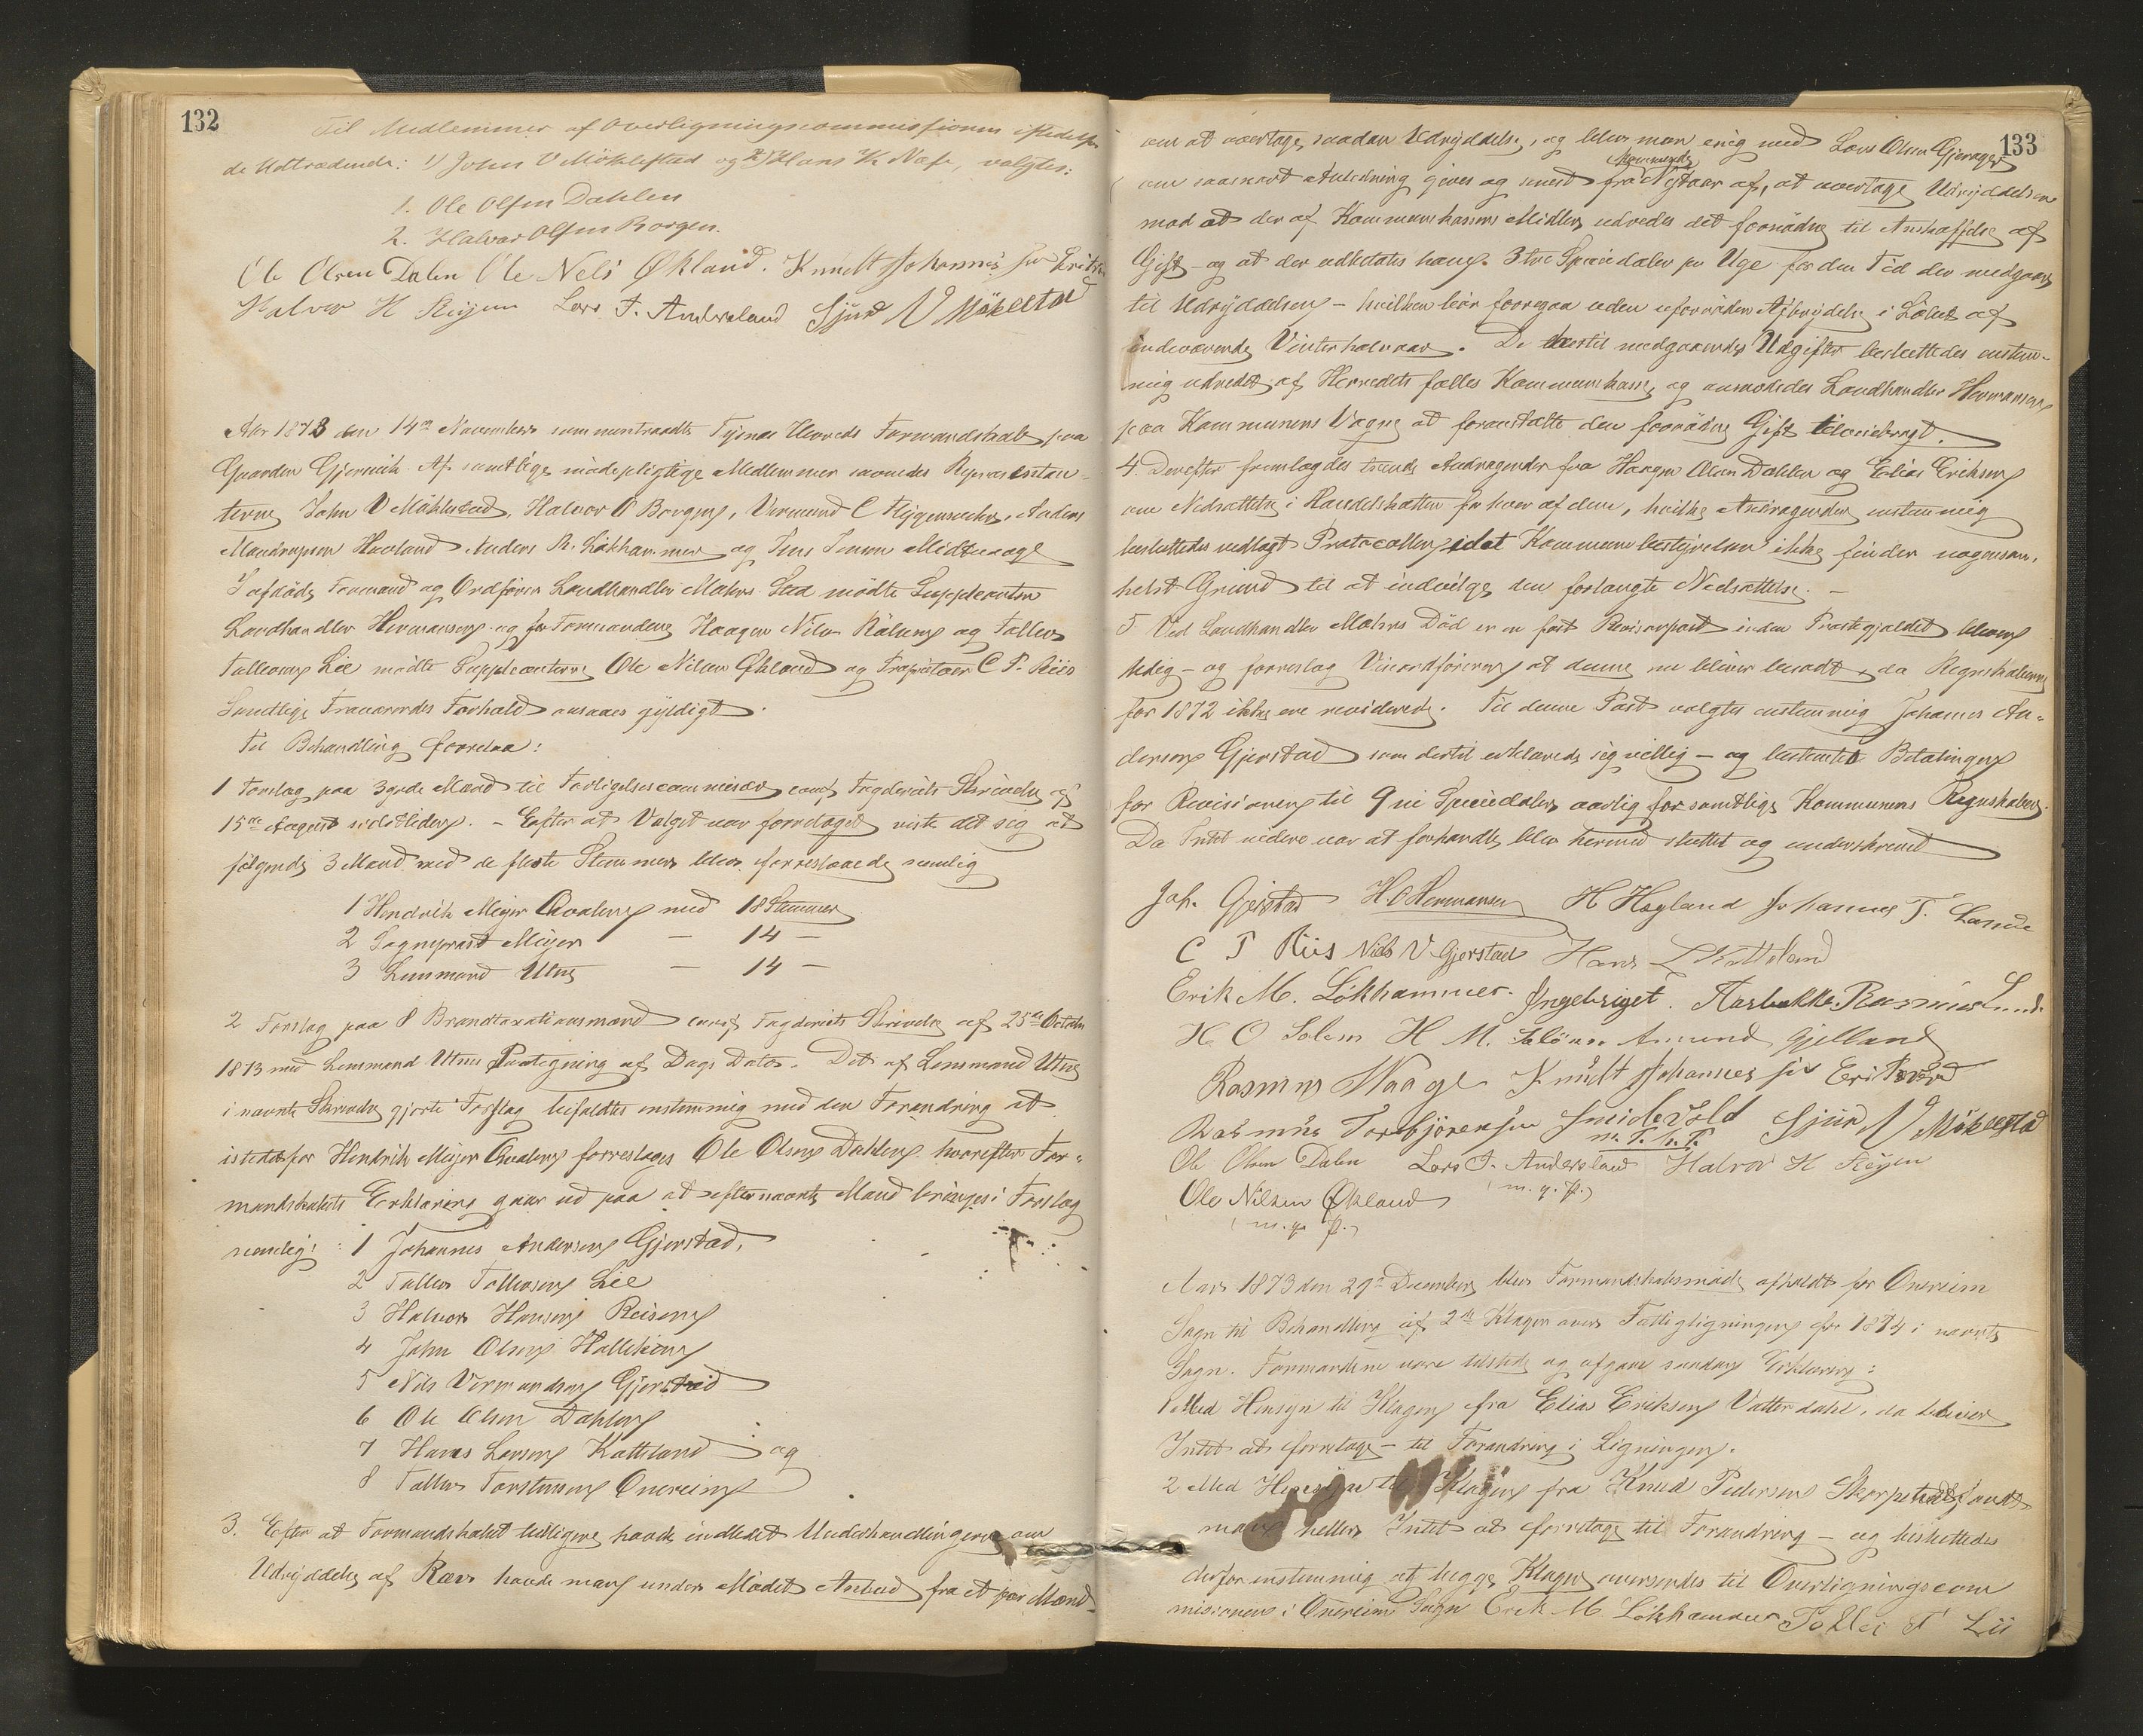 132
Til Medlemmer af Overligningscommissionen istedetfor
de Udtrædende: 1) John V Möklestad og 2) Hans K. Næse, valgtes:
1. Ole Olsen Dahlen
2. Halvor Olsen Borgen.
Ole Olsen Dalen Ole Nels Økland. Knudt Johannes
Halvor H Reisen Lars T. Andersland Sjur N Mökelstad
Aar 1873 den 14de November sammentraadte Tysnes Herreds Formandskab paa
Gaarden Gjersvik. Af samtlige mödepligtige Medlemmer savnedes Repræsentan-
terne John V Möklestad, Halvor O Borgen, Vermund C Flygansvær, Anders
Mandrupsen Hovland Anders R. Lökhammer og Jens Jensen Midtvaage
I afdöde Formand og Ordförer Landhandler Mohns Sted mödte Suppleanten
Landhandler Hermansen og for Formændene Haagen Nilsen Kålven og Tollev
Tollevsen Lie mödte Suppleanterne Ole Nilsen Økland og Proprietær C P. Riis
Samtlige Fraværendes Forhald ansaaes gyldigt.
Til Behandling forelaa:
1 Forslag paa 3gode Mænd til Forligelsescommissær conf Fogderiets Skrivelse af
15de August sidstleden. – Efter at Valget var foretaget viste det sig at
fölgende 3 Mænd med de fleste Stemmer blev foreslaaede nemlig
1 Hendrik Meyer Hvalen med 18 Stemmer
2 Sogneprest Meyer — 14 —
3 Lensmand Utne — 14 —
2 Forslag paa 8 Brandtaxationsmænd conf Fogderiets Skrivelse af 25de October
1873 med Lensmand Utnes Paategning af Dags Dato. Det af Lensmand Utne
i nævnte Skrivelse gjorte Forslag bifaldtes enstemmig med den Forandring at
istedetfor Hendrik Meyer Hvalen foreslages Ole Olsen Dahlen hvorefter For-
mandskabets Erklæring gaar ud paa at efternævnte Mænd bringes i Forslag
nemlig: 1 Johannes Andersen Gjerstad,
2 Tollev Tollevsen Lie
3 Halvor Hansen Reisen
4 John Olsen Hallekien
5 Nils Vermundsen Gjerstad
6 Ole Olsen Dahlen
7 Hans Larsen Kattland og
8 Tollev Torstensen Onereim
3. Efter at Formandskabet tidligere havde indledet Underhandlingerne om
Udryddelse af Ræv havde man under Mödet Anbud fra et par Mænd
133
om at overtage saadan Udryddelse, og blev man enig med Lars Olsen Gjerager
førstkommende
om saasnart Anledning gives og senest fra Nytaar af, at overtage Udryddelsen
mod at der af Kommunekassens Midler udredes det fornödne til Anskaffelse af
Gift – og at der udbetales ham 3 tre Speciedaler pr Uge for den Tid der medgaar
til Udryddelsen – hvilken bör foregaa uden uforuöden Afbrydelse i Löbet af
indeværende Vinterhalvaar. De hertil medgaaende Udgifter besluttedes enstem-
mig udredet af Herredets fælles Kommunekasse og anmodedes Landhandler Hermansen
paa Kommunens Vegne at foranstalte den fornödne Gift tilveiebragt.
4. Derefter fremlagdes tvende Andragender fra Haagen Olsen Dahlen og Elias Eriksen
om Nedsættelse i Handelsskatten for hver af dem, hvilke Andragender enstemmig
besluttedes vedlagt Protocollen, idet Kommunebestyrelsen ikke finder nogensom-
helst Grund til at indvilge den forlangte Nedsættelse. –
5 Ved Landhandler Mohns Död er en fast Revisorpost inden Præstegjeldet bleven
ledig – og foreslog Viceordföreren at denne nu bliver besadt, da Regnskaberne
for 1872 ikke ere reviderede. Til denne Post valgtes enstemmig Johannes An-
dersen Gjerstad som dertil erklærede sig villig – og bestemtes Betalingen
for Revisionen til 9 ni Speciedaler aarlig for samtlige Kommunens Regnskaber.
Da Intet videre var at forhandle blev hermed sluttet og underskrevet
Joh. Gjerstad H. O Hermansen H Hogland Johannes T. Lande
C P Riis Nils V Gjerstad Hans L Katteland
Erik M. Lökhammer. Ingebrigt. Aarbakke Rasmus Lund
H. O Solem H M. Amund Gjelland
Rasmus Waage Knudt Johannes
Rasmus Torbjörensen Smidevold Sjur N Mökelstad
m. P. h. P.
Ole Olsen Dalen Lars T. Andersland Halvor H Reisen
(m. p. P.)
Ole Nilsen Økland
(m. p. P.)
Aar 1873 den 29de December blev Formandskabsmöde afholdt for Onereim
Sogn til Behandling af 2de Klager over Fattigligningen for 1874 i nævnte
Sogn. Formændene vare tilstede og afgave saadan Erklæring:
1 Med Hensyn til Klagen fra Elias Eriksen Vatterdahl, da bliver
Intet at foretage – til Forandring i Ligningen.
2 Med Hensyn til Klagen fra Knud Pedersen fandt
man heller Intet at foretage til Forandring – og besluttedes
derfor enstemmig at begge Klager oversendes til Overligningscom
missionen i Onereim Sogn Erik M Lökhammer Tollei T Lii